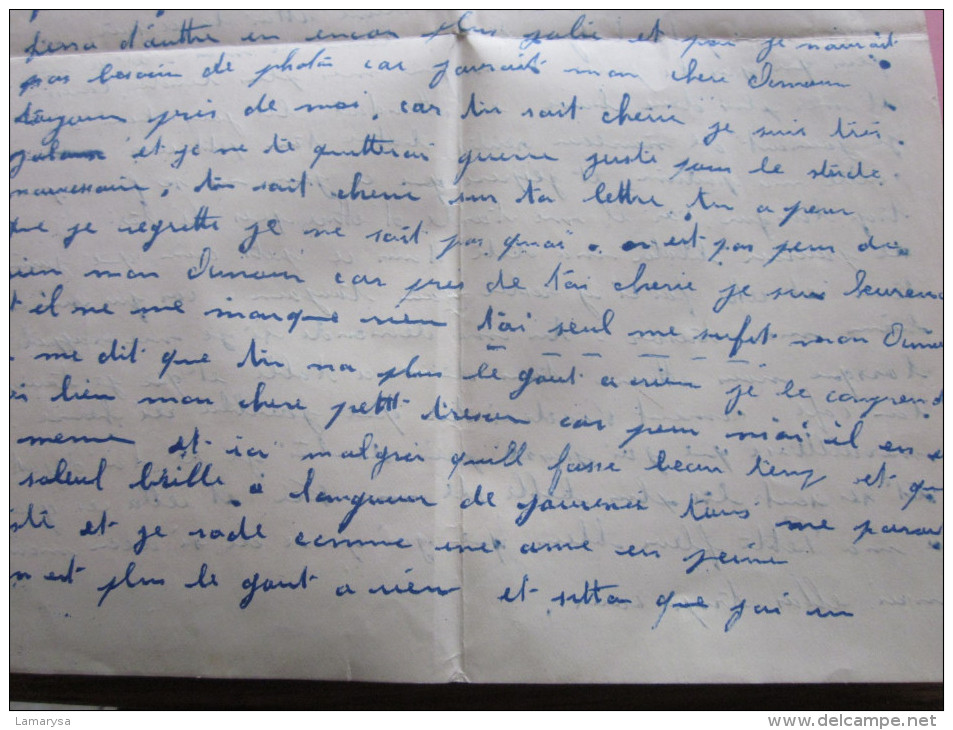 d'autre en encor plus jolie et puis je n'aurait
pas besoin de photo car j'aurait mon chere Amour
toujour près de moi, car tu sait cherie je suis très
jalous et je ne te quitterai guerre juste pour le
tu sait cherie sur ta lettre tu a peur
que je regrette je ne sait pas quoi. est pas peur de
rien mon Amour car pres de toi cherie je sui heureux
et il me me manque rien toi seul me sufit mon Amour
me dit que tu na plus le gout a rien je le comprend
bien mon chere petit tresor car pour moi il en e
meme et ici malgrer quill fasse beau temp et que
soleul brille a longueur de journer tous me parai
et je rode comme une ame en peine
est plus le gout a rien et sitto que j'ai un
Lamarysa
www.delcampe.net